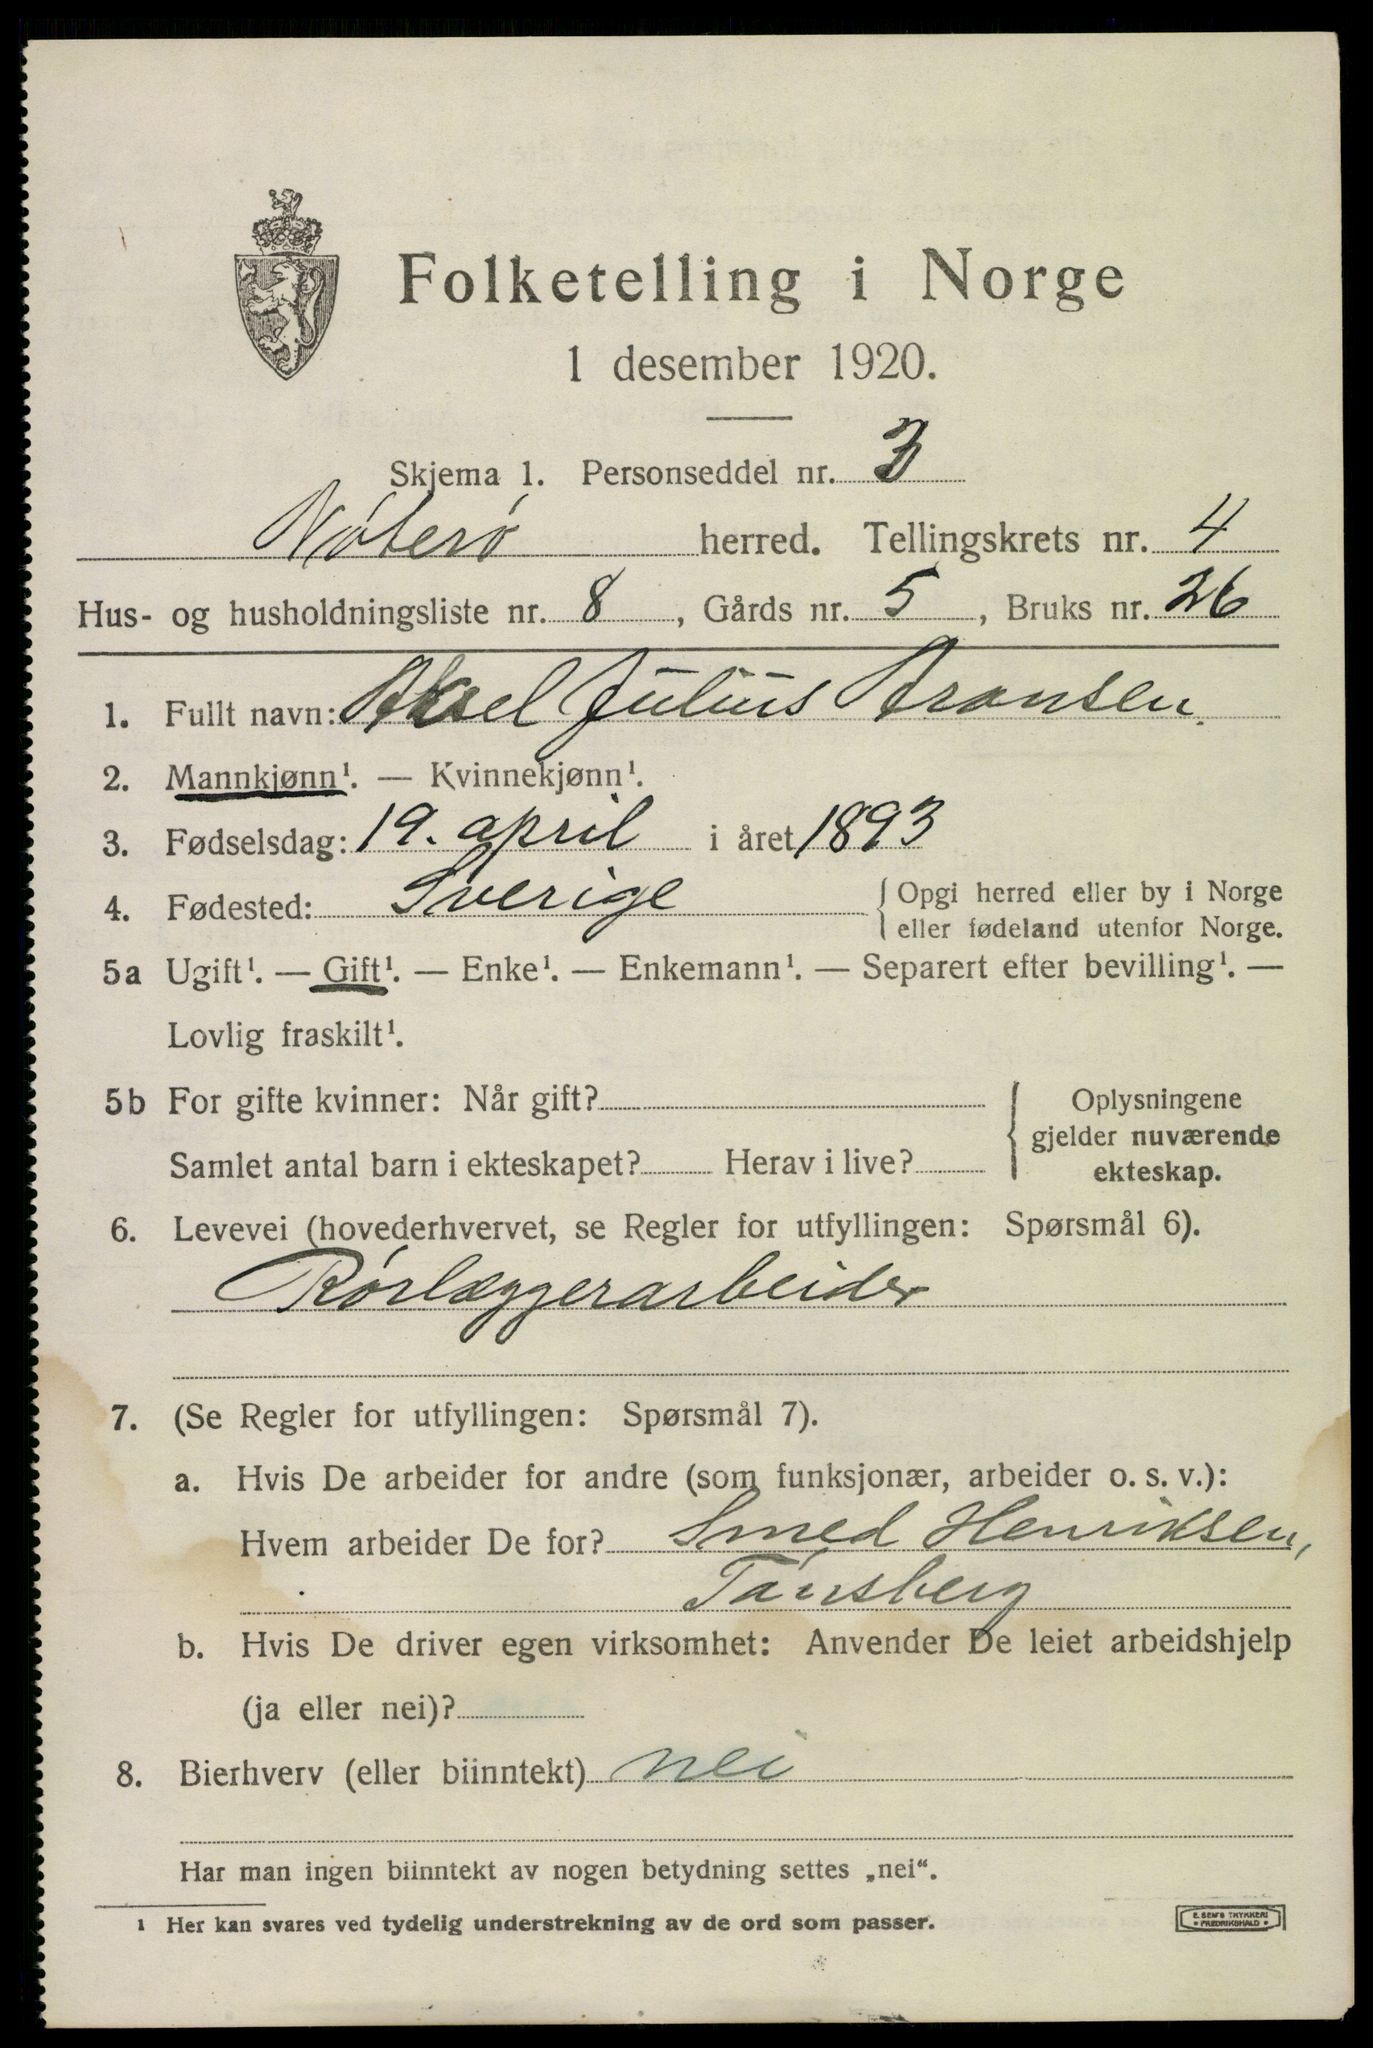 Folketelling i Norge
1 desember 1920.
Skjema 1. Personseddel nr. 3
Nøterø herred. Tellingskrets nr. 4
Hus- og husholdningsliste nr. 8, Gårds nr. 5, Bruks nr. 26
1. Fullt navn: Aksel Julius Aronsen.
2. Mannkjønn¹. — Kvinnekjønn¹.
3. Fødselsdag: 19. april i året 1893
4. Fødested: Sverige { Opgi herred eller by i Norge
eller fødeland utenfor Norge.
5a Ugift¹. — Gift¹. — Enke¹. — Enkemann¹. — Separert efter bevilling¹. —
Lovlig fraskilt¹.
5b For gifte kvinner: Når gift?
Samlet antal barn i ekteskapet? Herav i live?
{ Oplysningene
gjelder nuværende
ekteskap.
6. Levevei (hovederhvervet, se Regler for utfyllingen: Spørsmål 6).
Rørlæggerarbeider
7. (Se Regler for utfyllingen: Spørsmål 7).
a. Hvis De arbeider for andre (som funksjonær, arbeider o. s. v.):
Hvem arbeider De for? Smed Henriksen,
Tønsberg
b. Hvis De driver egen virksomhet: Anvender De leiet arbeidshjelp
(ja eller nei)?
8. Bierhverv (eller biinntekt) nei
Har man ingen biinntekt av nogen betydning settes „nei“.
¹ Her kan svares ved tydelig understrekning av de ord som passer.
E. SEM'S TRYKKERI
• FREDRIKSHALD •